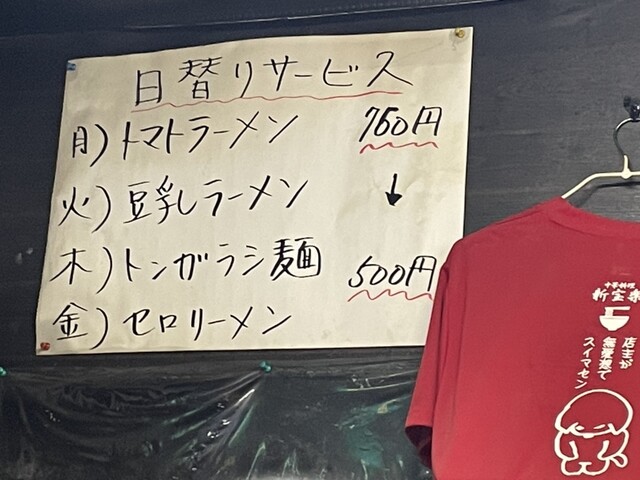 日替りサービス
月)トマトラーメン 760円
火)豆乳ラーメン ↓
木)トンガラシ麺 500円
金)セロリーメン
中華料理
新宝来
店主が
無愛想で
スイマセン